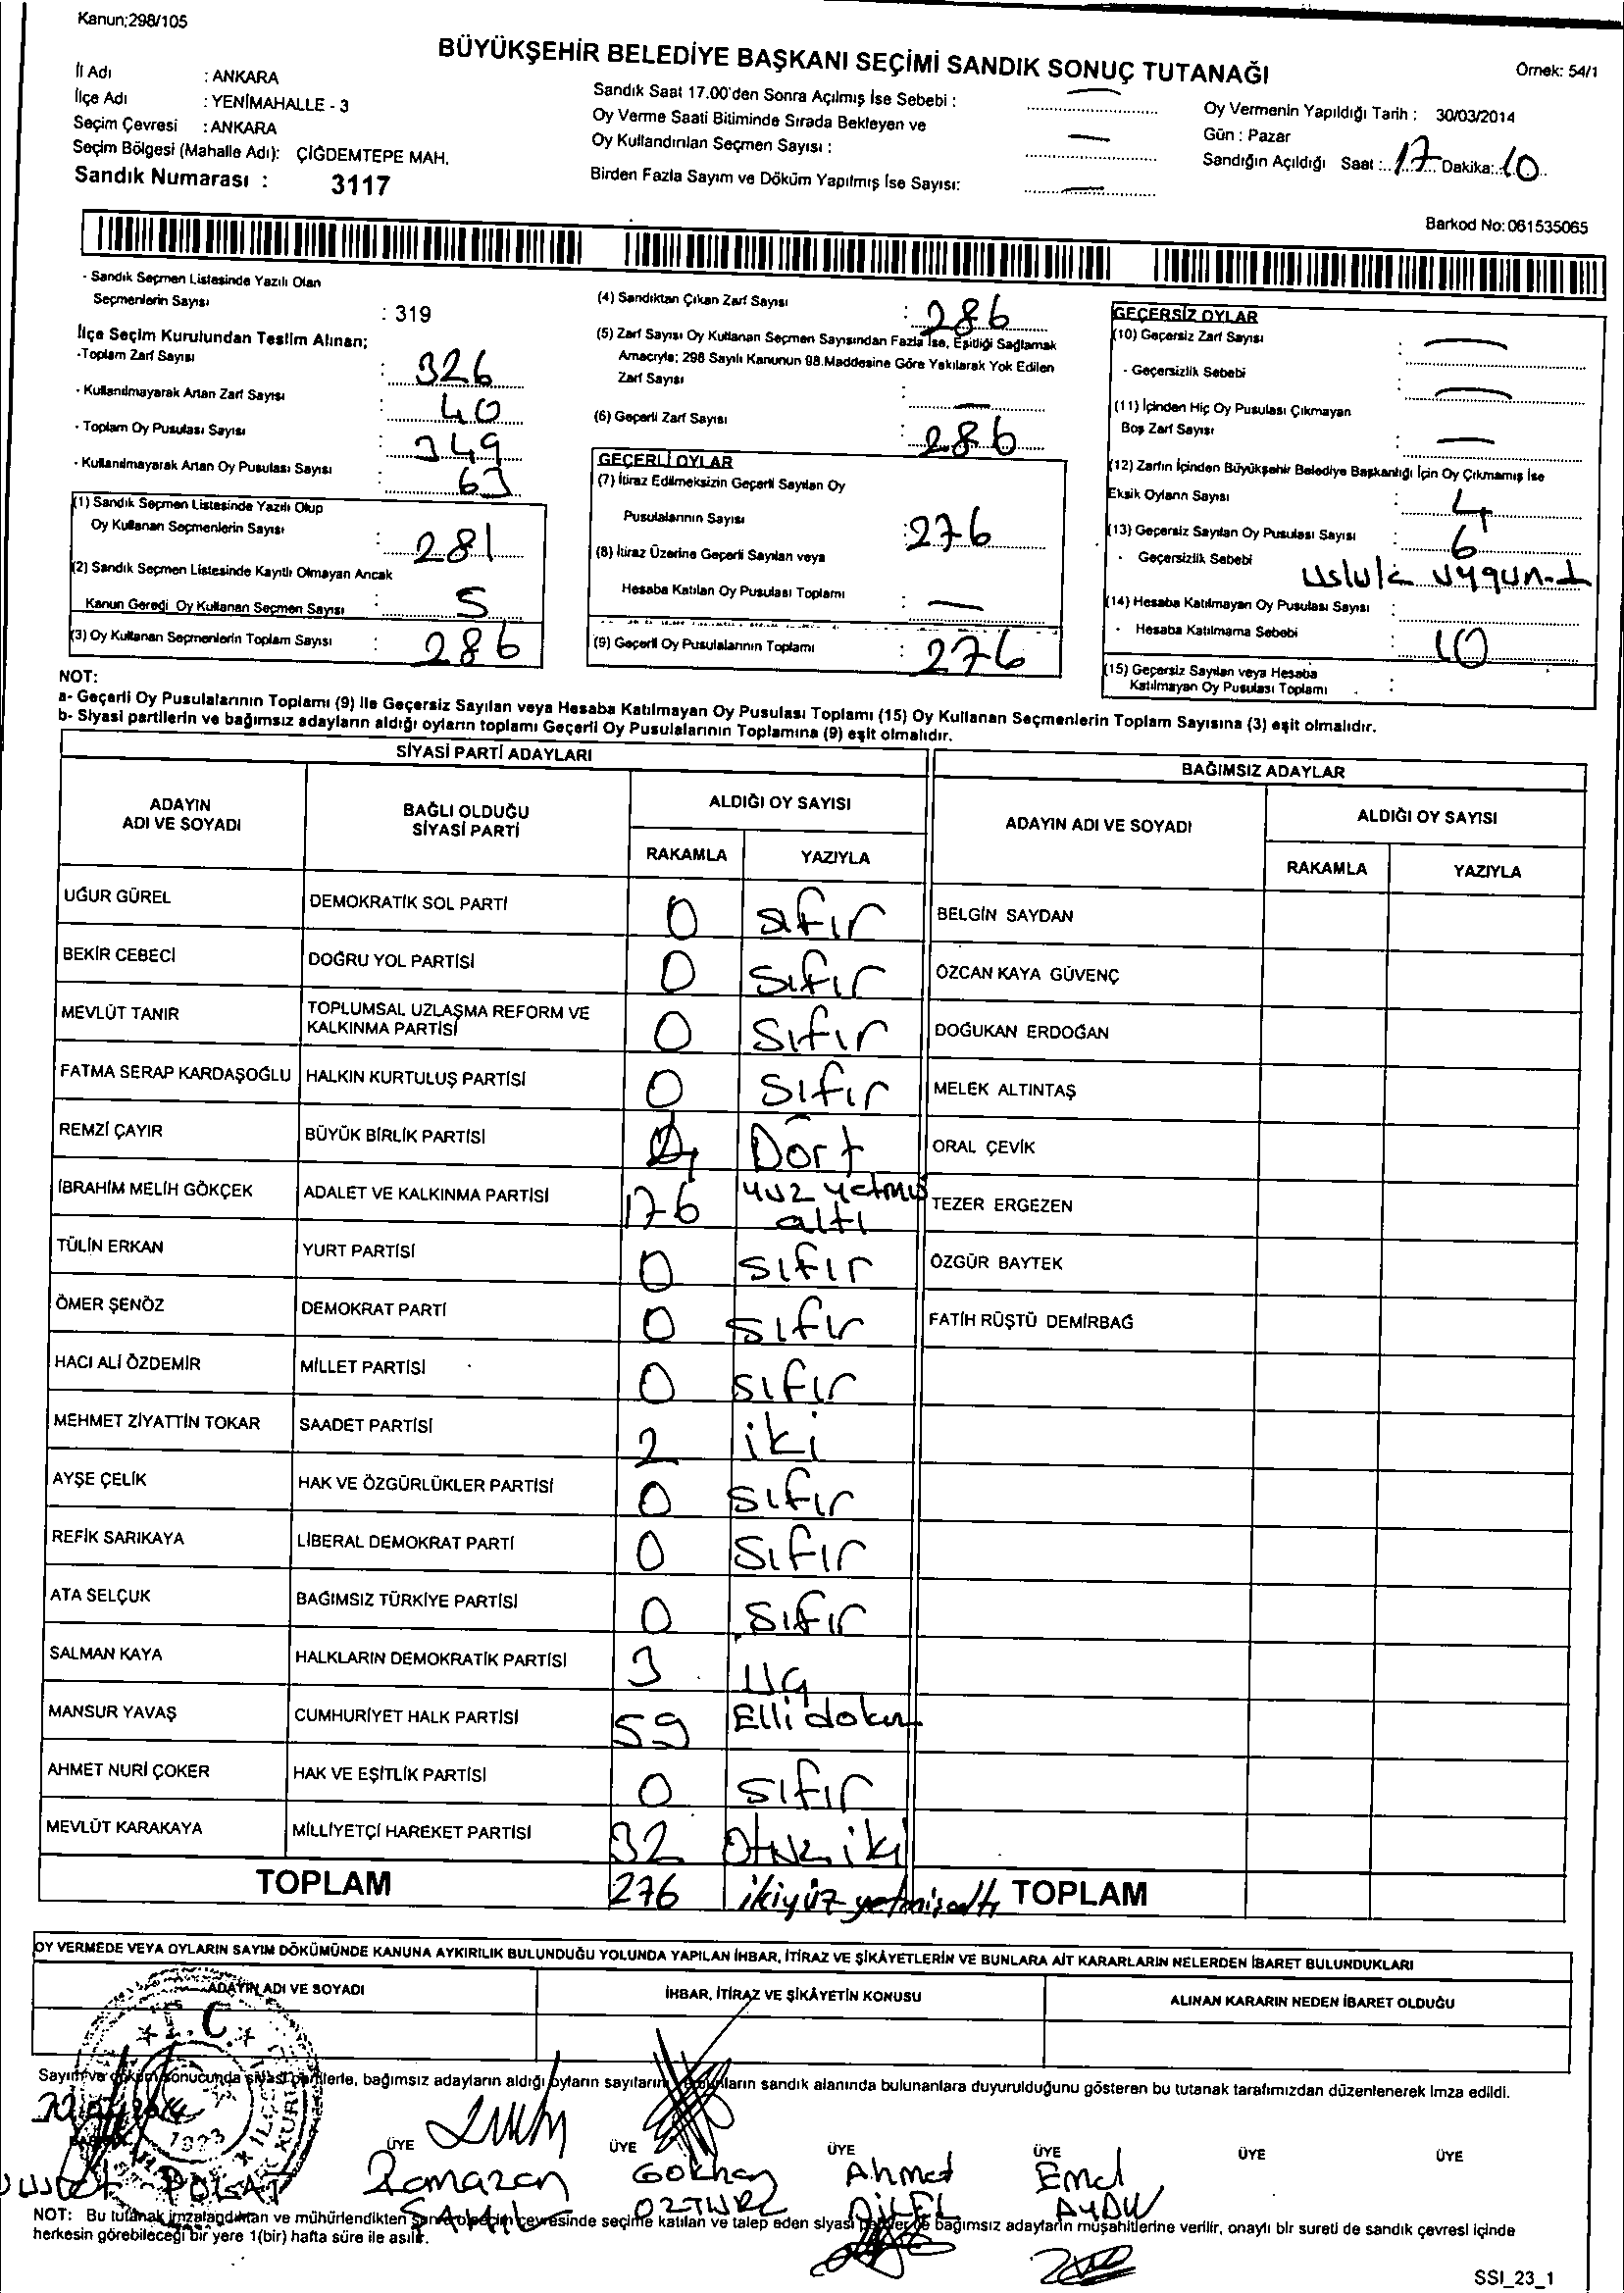 Kanun;298/105
BÜYÜKŞEHİR BELEDİYE BAŞKANI SEÇİMİ SANDIK SONUÇ TUTANAĞI
Örnek: 54/1
İl Adı : ANKARA
İlçe Adı : YENİMAHALLE - 3
Seçim Çevresi : ANKARA
Seçim Bölgesi (Mahalle Adı): ÇİĞDEMTEPE MAH.
Sandık Numarası : 3117
Sandık Saat 17.00'den Sonra Açılmış İse Sebebi : —
Oy Verme Saati Bitiminde Sırada Bekleyen ve
Oy Kullandırılan Seçmen Sayısı : —
Birden Fazla Sayım ve Döküm Yapılmış İse Sayısı: —
Oy Vermenin Yapıldığı Tarih : 30/03/2014
Gün : Pazar
Sandığın Açıldığı Saat : 17 Dakika: 10
Barkod No: 061535065
- Sandık Seçmen Listesinde Yazılı Olan
Seçmenlerin Sayısı : 319
İlçe Seçim Kurulundan Teslim Alınan;
-Toplam Zarf Sayısı : 326
- Kullanılmayarak Artan Zarf Sayısı : 40
- Toplam Oy Pusulası Sayısı : 349
- Kullanılmayarak Artan Oy Pusulası Sayısı : 63
(1) Sandık Seçmen Listesinde Yazılı Olup
Oy Kullanan Seçmenlerin Sayısı : 281
(2) Sandık Seçmen Listesinde Kayıtlı Olmayan Ancak
Kanun Gereği Oy Kullanan Seçmen Sayısı : 5
(3) Oy Kullanan Seçmenlerin Toplam Sayısı : 286
(4) Sandıktan Çıkan Zarf Sayısı : 286
(5) Zarf Sayısı Oy Kullanan Seçmen Sayısından Fazla İse, Eşitliği Sağlamak
Amacıyla; 298 Sayılı Kanunun 98.Maddesine Göre Yakılarak Yok Edilen
Zarf Sayısı : —
(6) Geçerli Zarf Sayısı : 286
GEÇERLİ OYLAR
(7) İtiraz Edilmeksizin Geçerli Sayılan Oy
Pusulalarının Sayısı : 276
(8) İtiraz Üzerine Geçerli Sayılan veya
Hesaba Katılan Oy Pusulası Toplamı : —
(9) Geçerli Oy Pusulalarının Toplamı : 276
GEÇERSİZ OYLAR
(10) Geçersiz Zarf Sayısı : —
- Geçersizlik Sebebi : —
(11) İçinden Hiç Oy Pusulası Çıkmayan
Boş Zarf Sayısı : —
(12) Zarfın İçinden Büyükşehir Belediye Başkanlığı İçin Oy Çıkmamış İse
Eksik Oyların Sayısı : 4
(13) Geçersiz Sayılan Oy Pusulası Sayısı : 6
- Geçersizlik Sebebi
(14) Hesaba Katılmayan Oy Pusulası Sayısı :
- Hesaba Katılmama Sebebi : 10
(15) Geçersiz Sayılan veya Hesaba
Katılmayan Oy Pusulası Toplamı :
NOT:
a- Geçerli Oy Pusulalarının Toplamı (9) ile Geçersiz Sayılan veya Hesaba Katılmayan Oy Pusulası Toplamı (15) Oy Kullanan Seçmenlerin Toplam Sayısına (3) eşit olmalıdır.
b- Siyasi partilerin ve bağımsız adayların aldığı oyların toplamı Geçerli Oy Pusulalarının Toplamına (9) eşit olmalıdır.
SİYASİ PARTİ ADAYLARI
BAĞIMSIZ ADAYLAR
ADAYIN ADI VE SOYADI
BAĞLI OLDUĞU SİYASİ PARTİ
ALDIĞI OY SAYISI
RAKAMLA YAZIYLA
ADAYIN ADI VE SOYADI
ALDIĞI OY SAYISI
RAKAMLA YAZIYLA
UĞUR GÜREL DEMOKRATİK SOL PARTİ 0 sıfır BELGİN SAYDAN
BEKİR CEBECİ DOĞRU YOL PARTİSİ 0 sıfır ÖZCAN KAYA GÜVENÇ
MEVLÜT TANIR TOPLUMSAL UZLAŞMA REFORM VE KALKINMA PARTİSİ 0 sıfır DOĞUKAN ERDOĞAN
FATMA SERAP KARDAŞOĞLU HALKIN KURTULUŞ PARTİSİ 0 sıfır MELEK ALTINTAŞ
REMZİ ÇAYIR BÜYÜK BİRLİK PARTİSİ 4 Dört ORAL ÇEVİK
İBRAHİM MELİH GÖKÇEK ADALET VE KALKINMA PARTİSİ 176 yuz yetmiş altı TEZER ERGEZEN
TÜLİN ERKAN YURT PARTİSİ 0 sıfır ÖZGÜR BAYTEK
ÖMER ŞENÖZ DEMOKRAT PARTİ 0 sıfır FATİH RÜŞTÜ DEMİRBAĞ
HACI ALİ ÖZDEMİR MİLLET PARTİSİ 0 sıfır
MEHMET ZİYATTİN TOKAR SAADET PARTİSİ 2 iki
AYŞE ÇELİK HAK VE ÖZGÜRLÜKLER PARTİSİ 0 sıfır
REFİK SARIKAYA LİBERAL DEMOKRAT PARTİ 0 sıfır
ATA SELÇUK BAĞIMSIZ TÜRKİYE PARTİSİ 0 sıfır
SALMAN KAYA HALKLARIN DEMOKRATİK PARTİSİ 3 üç
MANSUR YAVAŞ CUMHURİYET HALK PARTİSİ 59 Elli dokuz
AHMET NURİ ÇOKER HAK VE EŞİTLİK PARTİSİ 0 sıfır
MEVLÜT KARAKAYA MİLLİYETÇİ HAREKET PARTİSİ 32 Otuz iki
TOPLAM 276 ikiyüz yetmişaltı TOPLAM
OY VERMEDE VEYA OYLARIN SAYIM DÖKÜMÜNDE KANUNA AYKIRILIK BULUNDUĞU YOLUNDA YAPILAN İHBAR, İTİRAZ VE ŞİKÂYETLERİN VE BUNLARA AİT KARARLARIN NELERDEN İBARET BULUNDUKLARI
ADAYIN ADI VE SOYADI İHBAR, İTİRAZ VE ŞİKÂYETİN KONUSU ALINAN KARARIN NEDEN İBARET OLDUĞU
T.C.
Sayım ve döküm sonucunda siyasi partilerle, bağımsız adayların aldığı oyların sayılarını bunların sandık alanında bulunanlara duyurulduğunu gösteren bu tutanak tarafımızdan düzenlenerek imza edildi.
1923
ÜYE ÜYE ÜYE ÜYE ÜYE ÜYE
POLAT
Ramazan
Gökhan ÖZTÜRK
Ahmet
Emel AYDIN
NOT: Bu tutanak imzalandıktan ve mühürlendikten seçim çevresinde seçime katılan ve talep eden siyasi bağımsız adayların müşahitlerine verilir, onaylı bir sureti de sandık çevresi içinde
herkesin görebileceği bir yere 1(bir) hafta süre ile asılır.
SSI_23_1